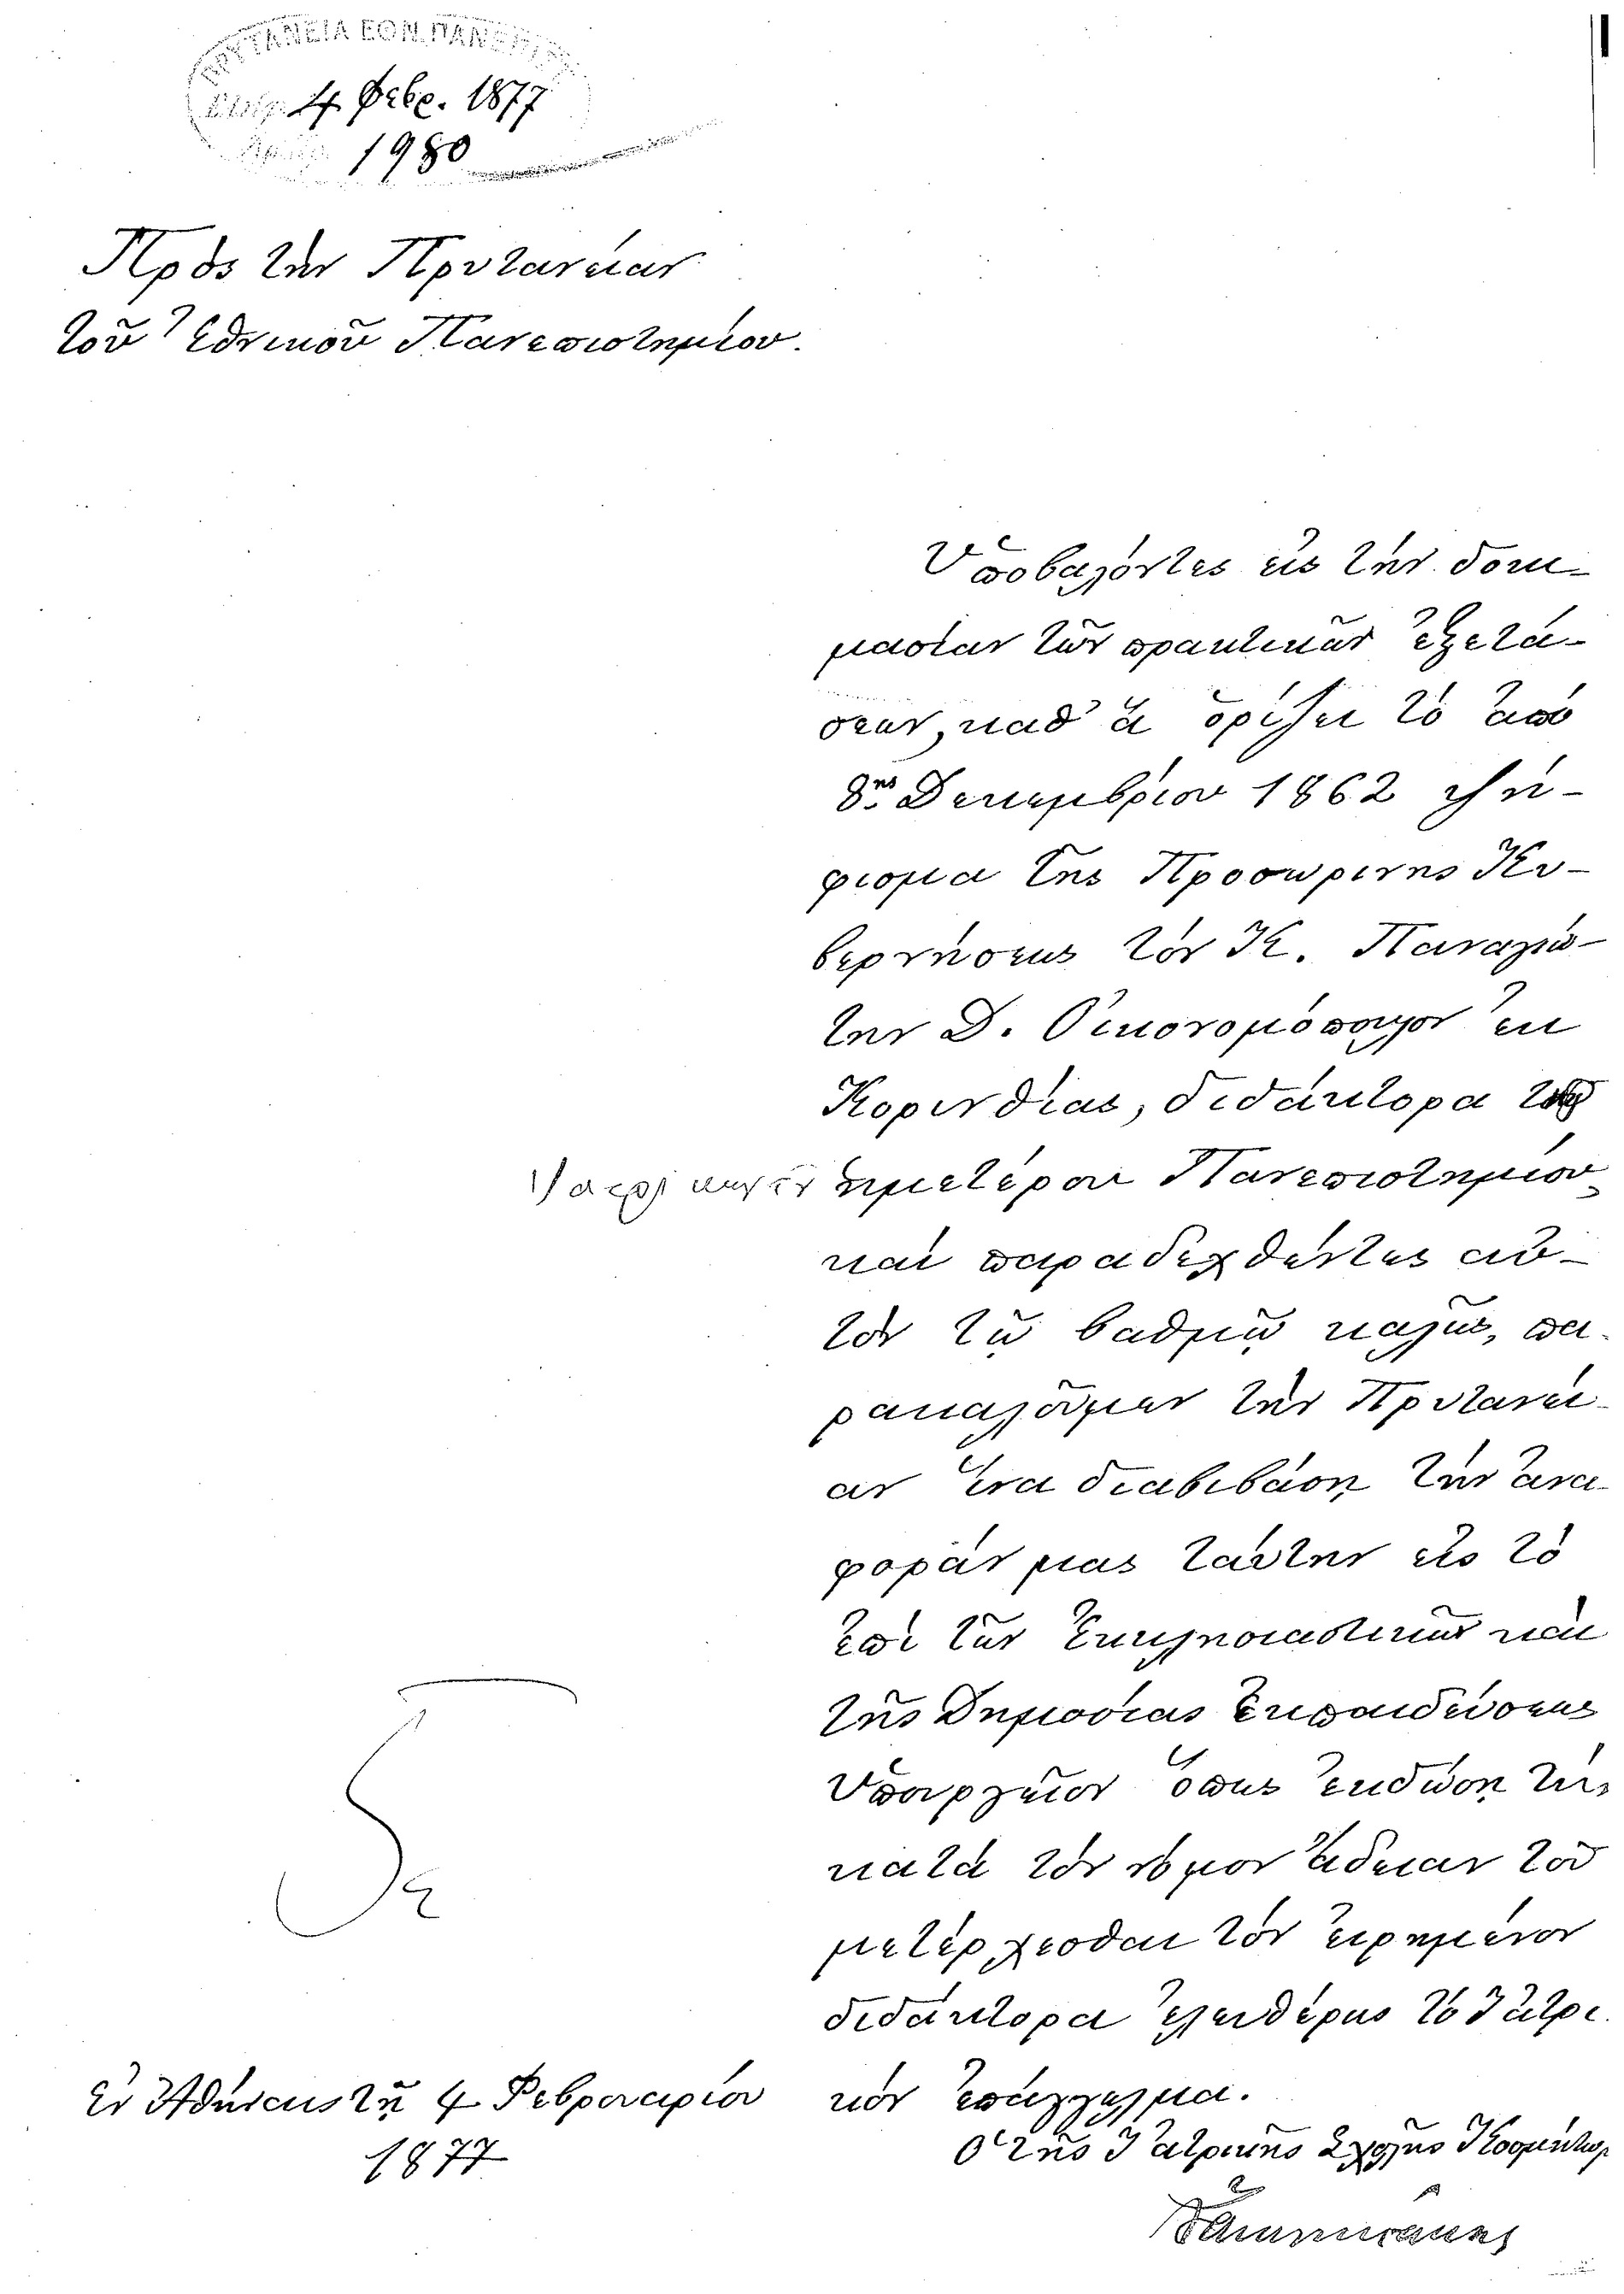 ΠΡΥΤΑΝΕΙΑ ΕΘΝ. ΠΑΝΕΠΙΣ
4 Φεβρ. 1877
1980
Πρὸς τὴν Πρυτανείαν
τοῦ Ἐθνικοῦ Πανεπιστημίου.
Ὑποβαλόντες εἰς τὴν δοκι-
μασίαν τῶν πρακτικῶν ἐξετά-
σεων, καθ' ἃ ὁρίζει τὸ ἀπὸ
8ης Δεκεμβρίου 1862 ψή-
φισμα τῆς Προσωρινῆς Κυ-
βερνήσεως τὸν Κ. Παναγιώ-
την Δ. Οἰκονομόπουλον ἐκ
Κορινθίας, διδάκτορα τοῦ
ἡμετέρου Πανεπιστημίου
καὶ παραδεχθέντες αὐ-
τὸν τῷ βαθμῷ καλῶς, πα-
ρακαλοῦμεν τὴν Πρυτανεί-
αν ἵνα διαβιβάσῃ τὴν ἀνα-
φοράν μας ταύτην εἰς τὸ
ἐπὶ τῶν Ἐκκλησιαστικῶν καὶ
τῆς Δημοσίας Ἐκπαιδεύσεως
Ὑπουργεῖον ὅπως ἐκδώσῃ τὴν
κατὰ τὸν νόμον ἄδειαν τοῦ
μετέρχεσθαι τὸν εἰρημένον
διδάκτορα ἐλευθέρως τὸ Ἰατρι-
κὸν ἐπάγγελμα.
Ἐν Ἀθήναις τῇ 4 Φεβρουαρίου
1877
Ὁ τῆς Ἰατρικῆς Σχολῆς Κοσμήτωρ